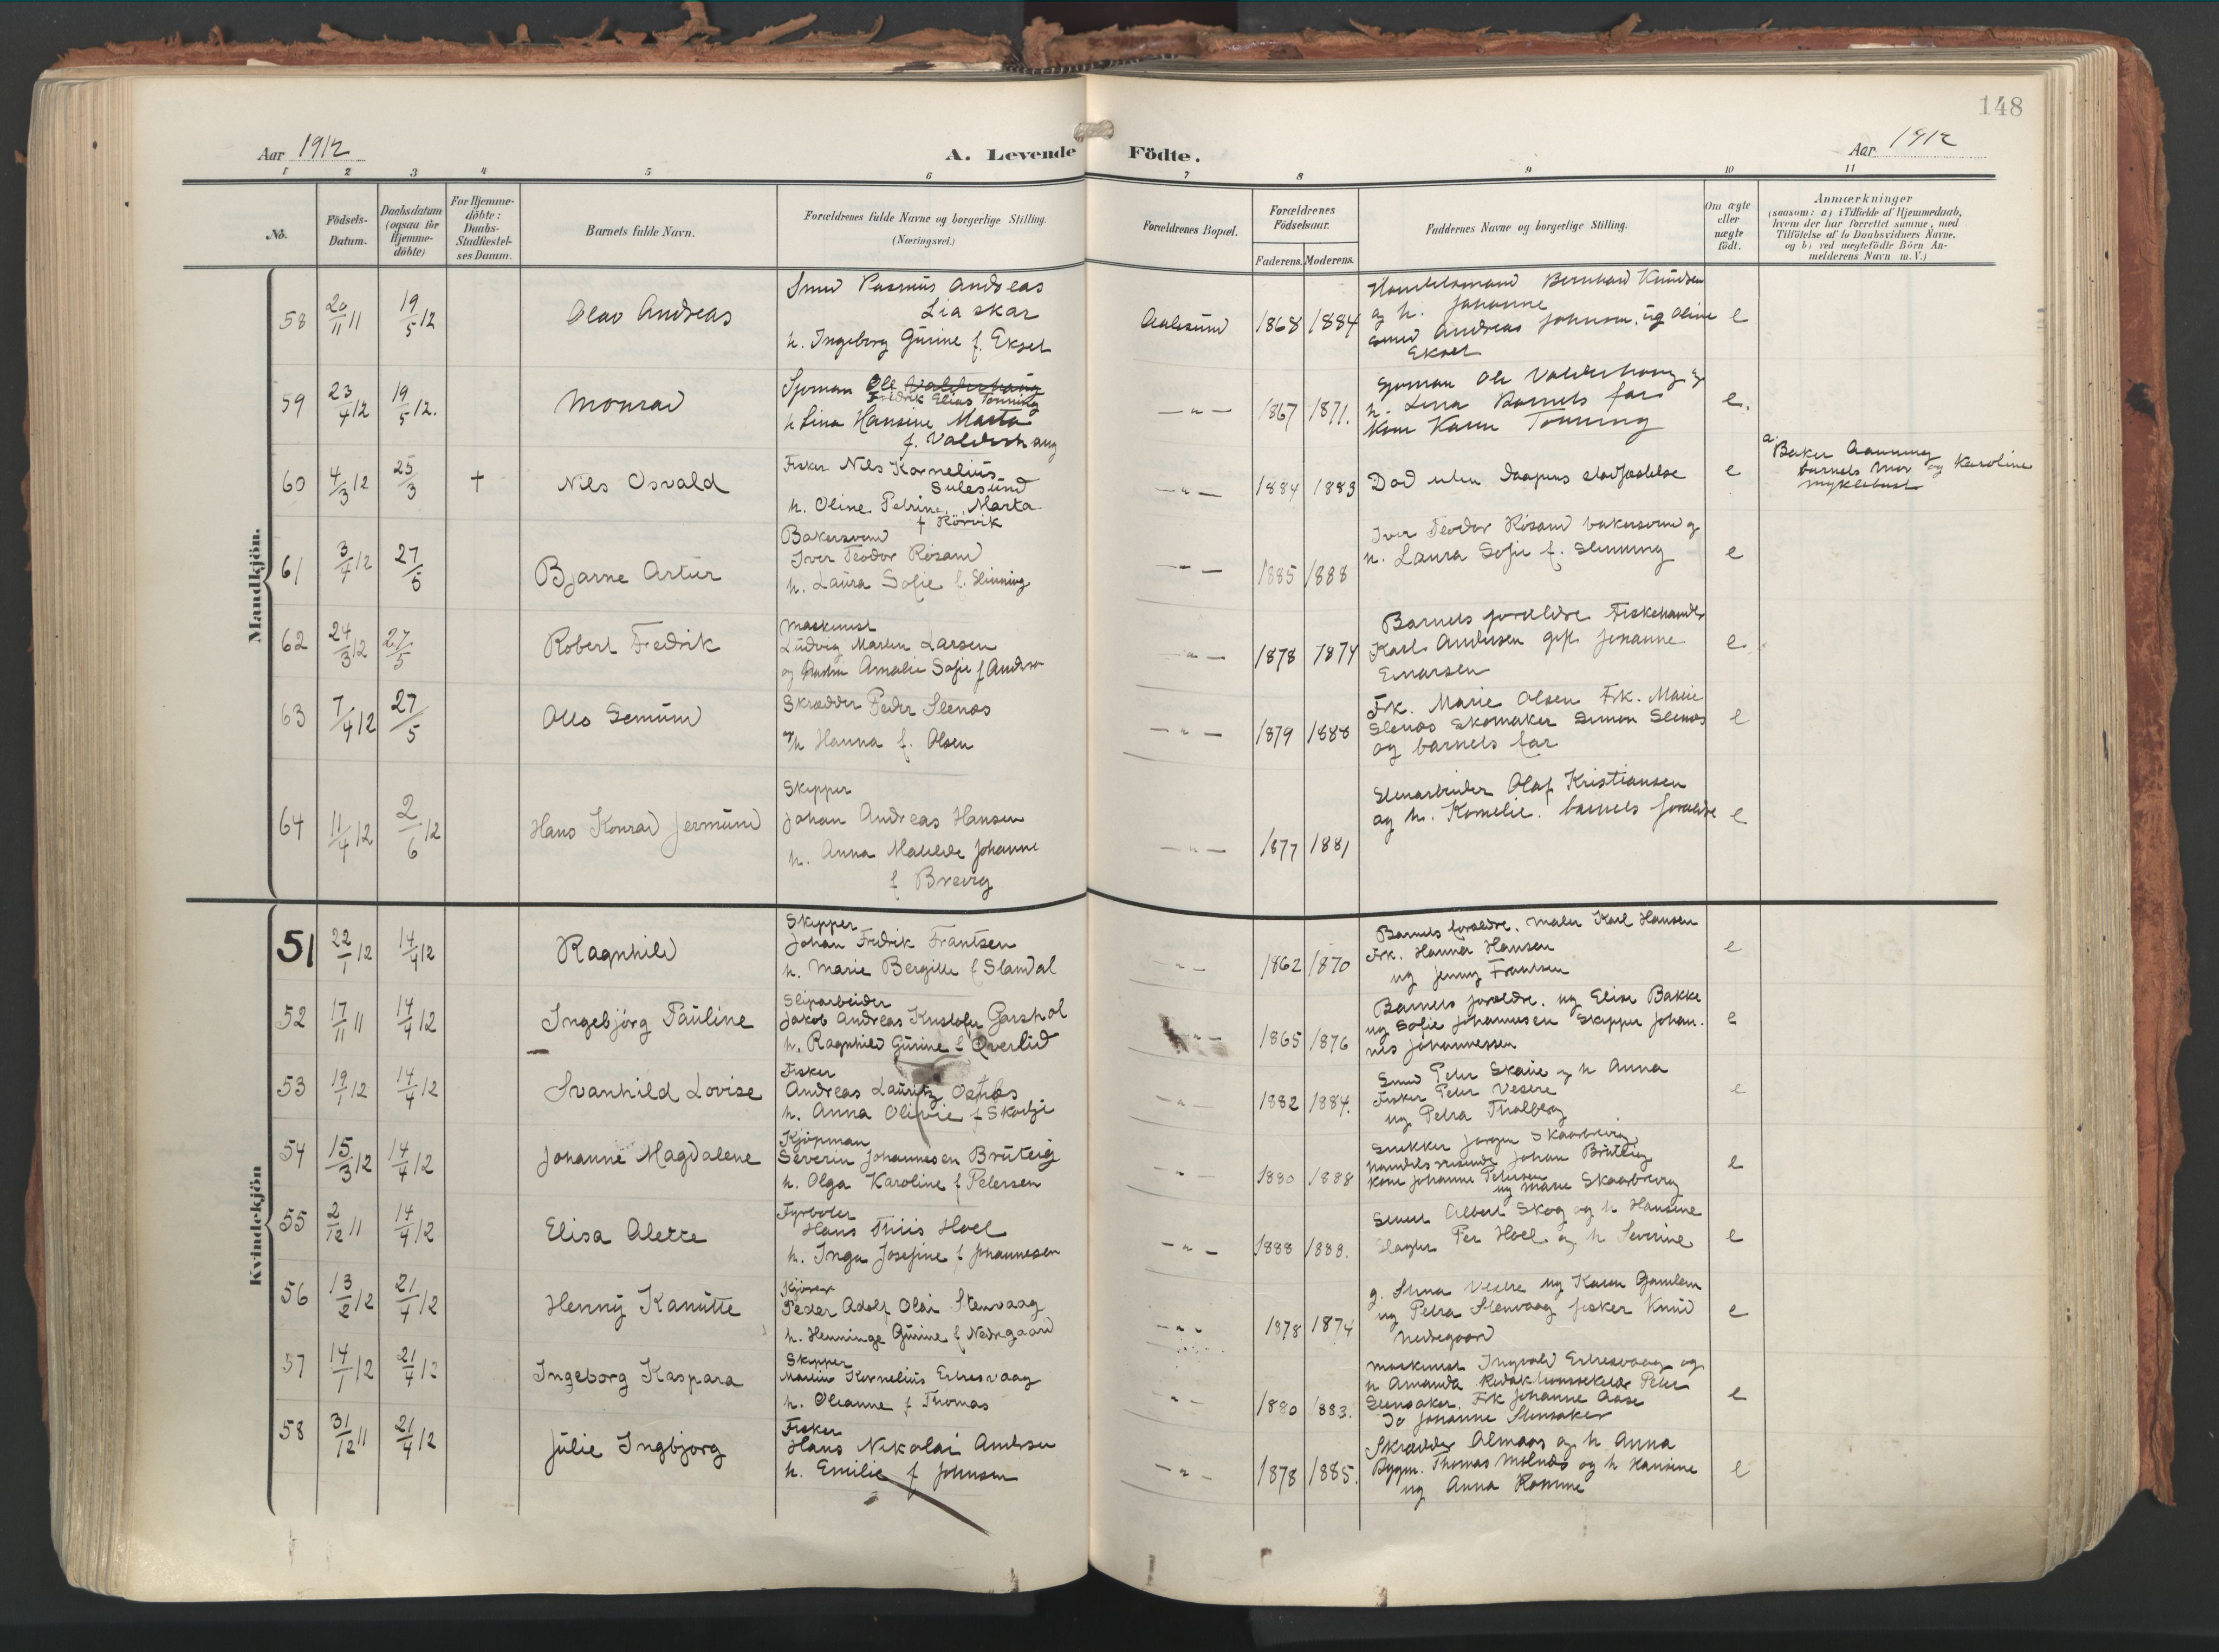 148
Aar 1912
A. Levende Födte.
Aar 1912
1 2 3 4 5 6 7 8 9 10 11
No.
Födsels-
Datum.
Daabsdatum
(ogsaa for
Hjemme-
döbte)
For Hjemme-
döbte:
Daabs-
Stadfæstel-
ses Datum.
Barnets fulde Navn.
Forældrenes fulde Navne og borgerlige Stilling.
(Næringsvei.)
Forældrenes Bopæl.
Forældrenes
Födselsaar.
Faderens. Moderens.
Faddernes Navne og borgerlige Stilling.
Om ægte
eller
uægte
födt.
Anmærkninger
(saasom: a) i Tilfælde af Hjemmedaab,
hvem der har forrettet samme, med
Tilföielse af to Daabsvidners Navne,
og b) ved uægtefödte Börn An-
melderens Navn m. V.)
Mandkjön.
58 20/11 11 19/5 12 Olav Andreas
Smed Rasmus Andreas
Liaskar
h. Ingeborg Gurine f. Eksel
Aalesund 1868 1884
Handelsmand Bernhard Knudsen
og h. Johanne
smed Andreas Johnsen. ug Oline
Eksel
e
59 23/4 12 19/5 12. Monrad
Sjoman Ole Valderhaug
Fredrik Elias Tonning
h Lina Hansine Marta
f. Valderhaug
— " — 1867 1871.
Sjoman Ole Valderhaug og
h. Lina Barnets far
kone Karen Tonning
e.
60 4/3 12 25/3 + Nils Osvald
Fisker Nils Kornelius
Sulesund
h. Oline Petrine Marta
f Rörvik
— " — 1884 1883
Död uten daapens stadfæstelse
e
a. Baker Aanning
barnets mor og Karoline
Myklebust
61 3/4 12 27/5 Bjarne Artur
Bakersvend
Iver Teodor Rösand
h. Laura Sofie f. Slinning
— " — 1885 1888
Iver Teodor Rösand bakersvend og
h. Laura Sofie f. Slinning
e
62 24/3 12 27/5 Robert Fredrik
Maskinist
Ludvig Martin Larsen
og Amalie Sofie f Andr
— " — 1878 1874
Barnets foreldre Fiskehandl
Karl Andersen gift Johanne
Einarsen
e
63 7/4 12 27/5 Otto Semund
Skrædder Peder Stenos
h Hanna f. Olsen
— " — 1879 1888
Frk. Marie Olsen Frk. Marie
Stenos Skomaker Simon Stenos
og barnets far
e
64 11/4 12 2/6 12 Hans Konrad Jermund
Skipper
Johan Andreas Hansen
h. Anna Matilde Johanne
f Breivg
— " — 1877 1881
Stenarbeider Olaf Kristiansen
og h. Kornelie. barnets foreldre
e
Kvindekjön
51 22/1 12 14/4 12 Ragnhild
Skipper
Johan Fredrik Frantsen
h. Marie Bergitte f Standal
— " — 1862 1870
Barnets foreldre. Maler Karl Hansen
Frk. Hanna Hansen
ug Jenny Frantsen
e
52 17/11 11 14/4 12 Ingebjörg Pauline
Sliparbeider
Jakob Andreas Kristofer Garshol
h. Ragnhild Gurine f Överlid
— " — 1865 1876
Barnets foreldre. ug Elise Bakke
ug Sofie Johannesen Skipper Johan-
nes Johannessen
e
53 19/1 12 14/4 12 Svanhild Lovise
Fisker
Andreas Lauritz Osnes
h. Anna Olivie f Skodje
— " — 1882 1884.
Smed Peter Skaue og h Anna
Fisker Peter Vestre
ug Petra Tholberg
e
54 15/3 12 14/4 12 Johanne Magdalene
Kjöpman
Severin Johannesen Bruteig
h. Olga Karoline f Petersen
— " — 1880 1888
Snekker Jörgen Skaarbrevig
handelsreisende Johan Bruteig
kone Johanne Petersen
ug Marie Skaarbrevig
e
55 2/12 11 14/4 12 Elisa Alette
Fyrböter
Hans Thiis Hoel
h. Inga Josefine f Johannesen
— " — 1888 1888.
Albert Skog og h Hansine
Slagter Per Hoel og h Severine
e
56 13/2 12 21/4 12 Henny Kanutte
Kjörer
Peder Adolf Olai Stenvaag
h. Henninge Gurine f Nedregaard
— " — 1878 1874
g. Stina Vestre ug Karen Gamlem
ug Petra Stenvaag fisker Knud
Nedregaard
e
57 14/1 12 21/4 12 Ingeborg Kaspara
Skipper
Martin Kornelius Ertesvaag
h. Oleanne f Thomas
— " — 1880 1883.
Maskinist Ingvald Ertesvaag og
h Amanda Redaktionssekretær Peter
Stensaker. Frk Johanne Aase
Do Johanne Stensaker
e
58 31/12 11 21/4 12 Julie Ingbjorg
Fisker
Hans Nikolai Andersen
h. Emilie f Johnsen
— " — 1878 1885.
Skrædder Almaas og h Anna
Bygm. Thomas Molnes og h Hansine
ug Anna Romme
e